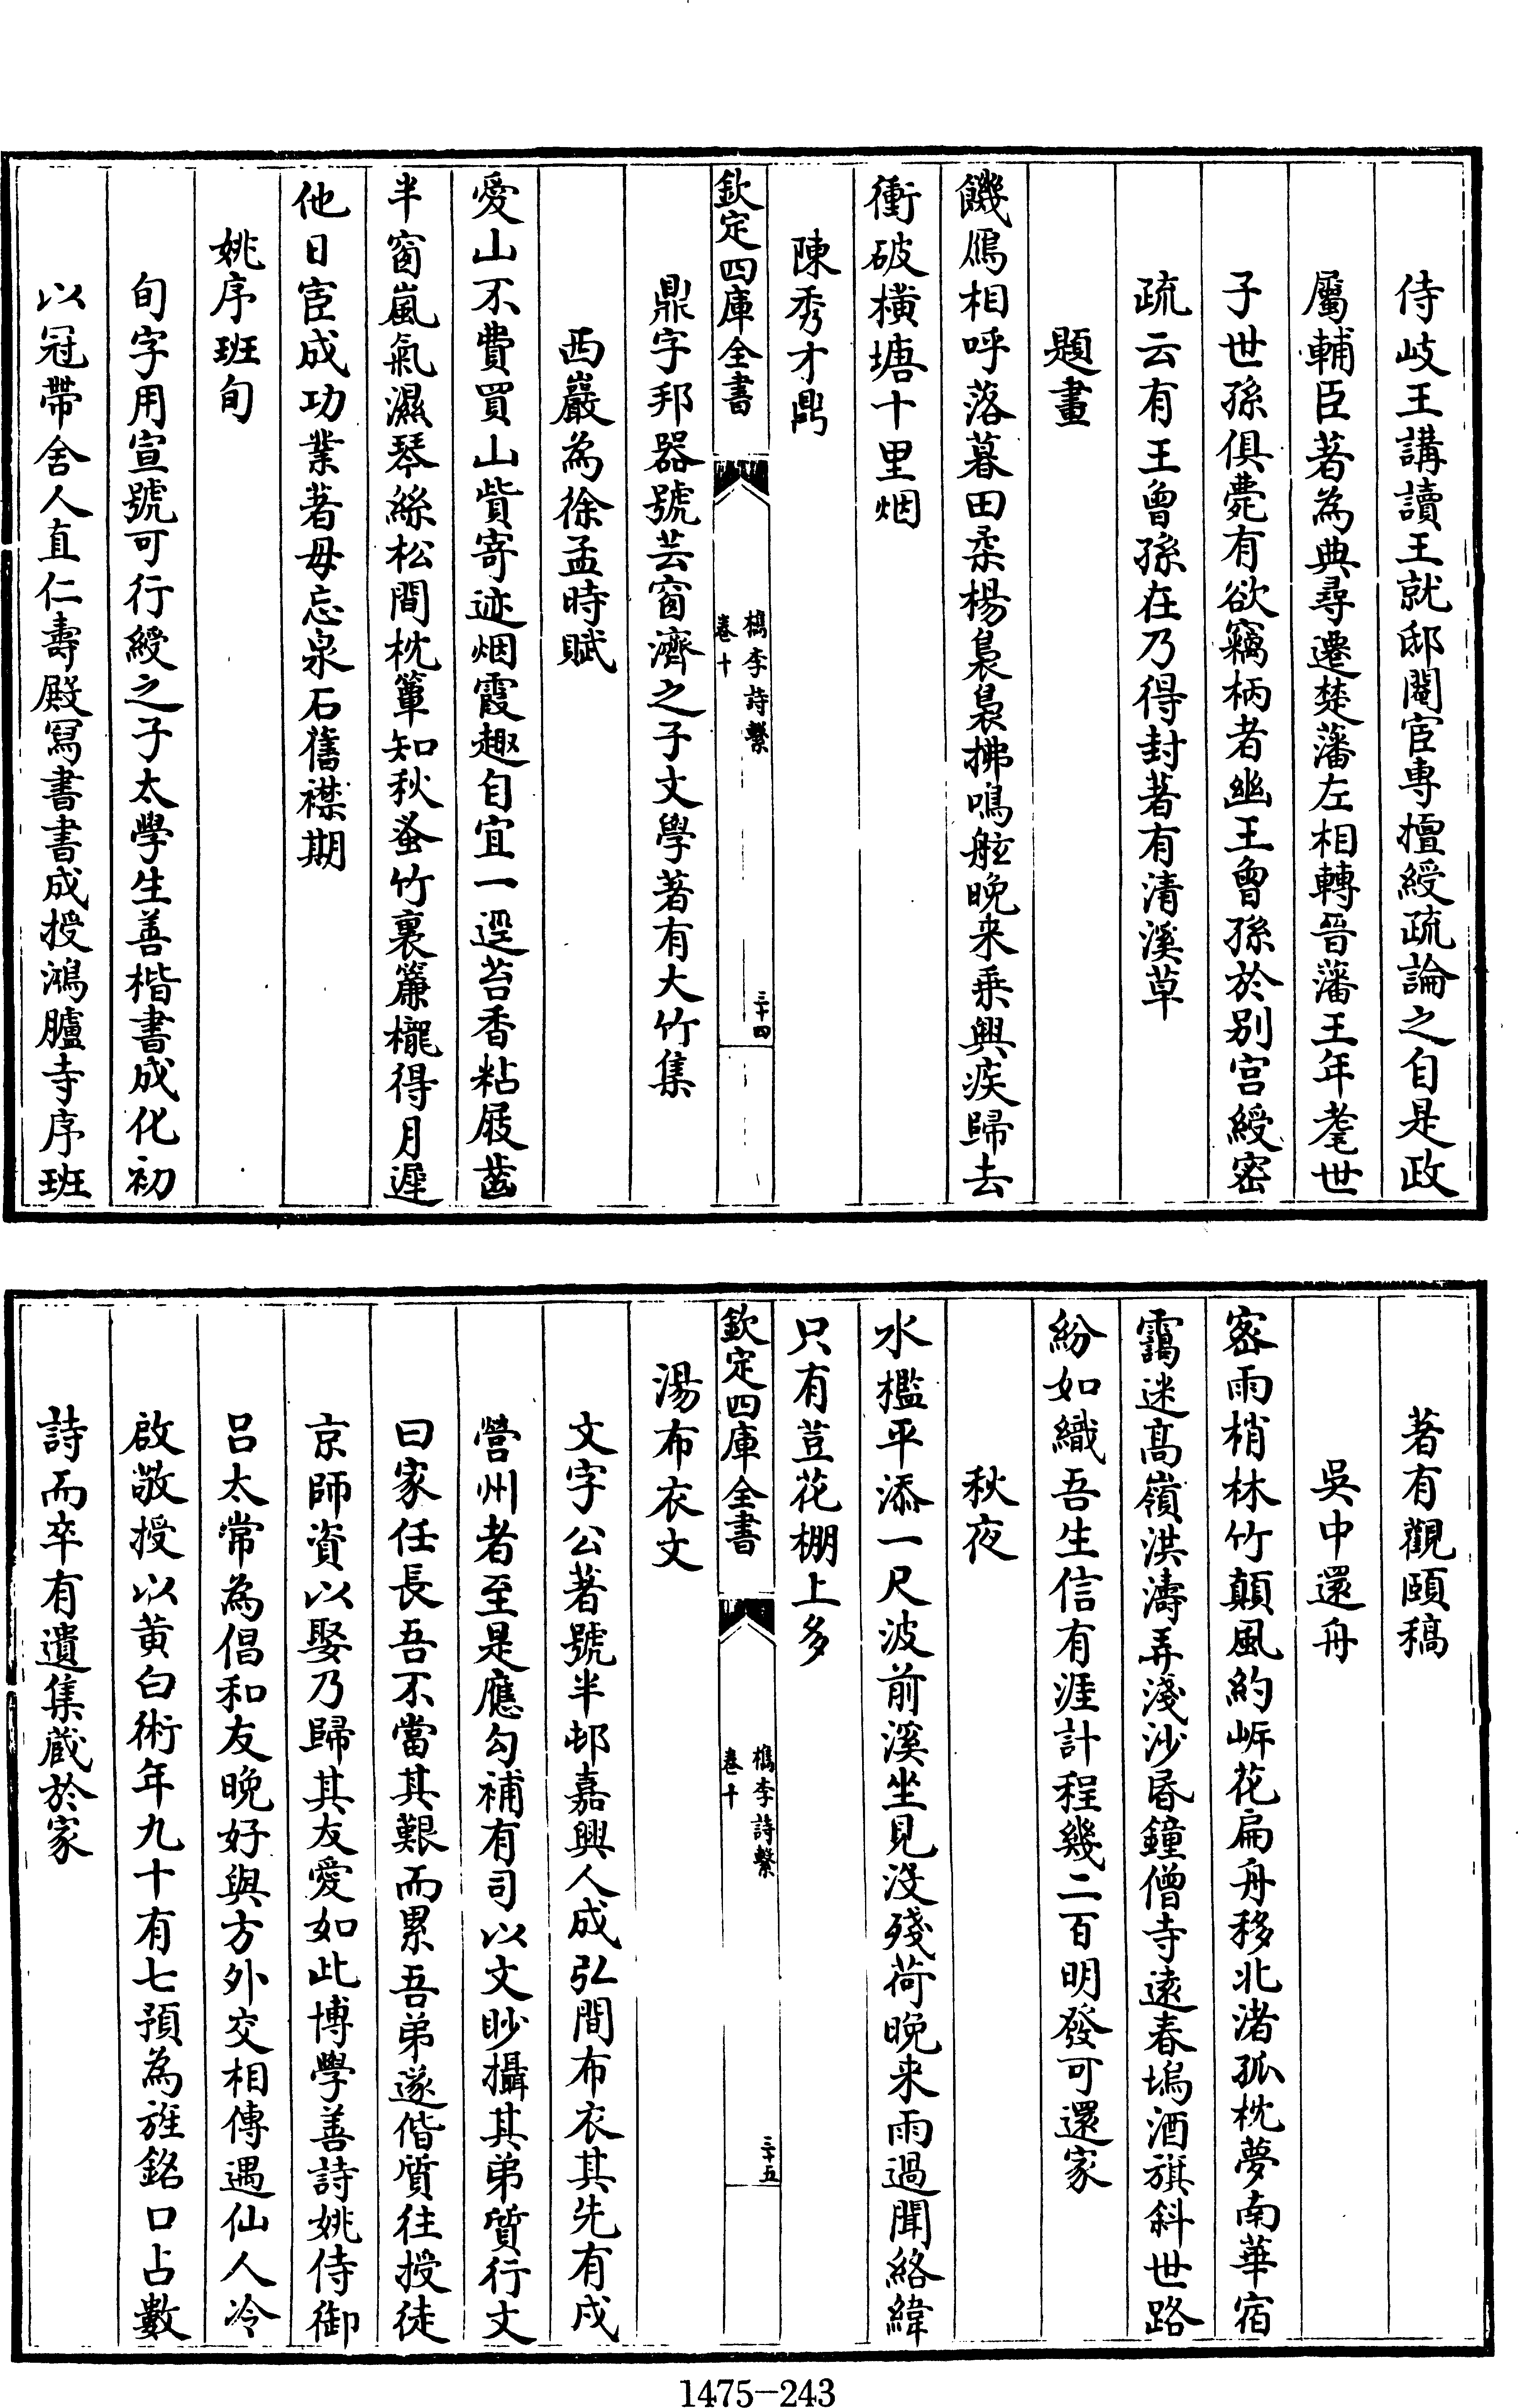 侍岐王講讀王就邸閹宦専擅綬疏論之自是政
屬輔臣著為典尋遷楚藩左相轉晉藩王年耄世
子世孫俱薨有欲竊柄者幽王曾孫於别宫綬密
疏云有王曾孫在乃得封著有清溪草
題畫
饑鴈相呼落暮田柔楊裊裊拂鳴舷晚来乗興疾歸去
衝破横塘十里烟
陳秀才鼎
欽定四庫全書
檇李詩繫
卷十
三十四
鼎字邦器號芸窗濟之子文學著有大竹集
西巖為徐孟時賦
愛山不費買山貲寄迹烟霞趣自宜一逕苔香粘屐齒
半窗嵐氣濕琴絲松間枕簟知秋蚤竹裏簾櫳得月遲
他日宦成功業著毋忘泉石舊襟期
姚序班旬
旬字用宣號可行綬之子太學生善楷書成化初
以冠帶舍人直仁壽殿寫書書成授鴻臚寺序班
著有觀頤稿
吳中還舟
密雨梢林竹顛風約㟁花扁舟移北渚孤枕夢南華宿
靄迷髙嶺洪濤弄淺沙昏鐘僧寺遠春塢酒旗斜世路
紛如織吾生信有涯計程幾二百明發可還家
秋夜
水檻平添一尺波前溪坐見没殘荷晚来雨過聞絡緯
只有荳花棚上多
欽定四庫全書
檇李詩繫
卷十
三十五
湯布衣文
文字公著號半邨嘉興人成弘間布衣其先有戍
營州者至是應勾補有司以文眇攝其弟質行文
曰家任長吾不當其艱而累吾弟遂偕質往授徒
京師資以娶乃歸其友愛如此博學善詩姚侍御
吕太常為倡和友晚好與方外交相傳遇仙人冷
啟敬授以黄白術年九十有七預為旌銘口占數
詩而卒有遺集藏於家
1475-243